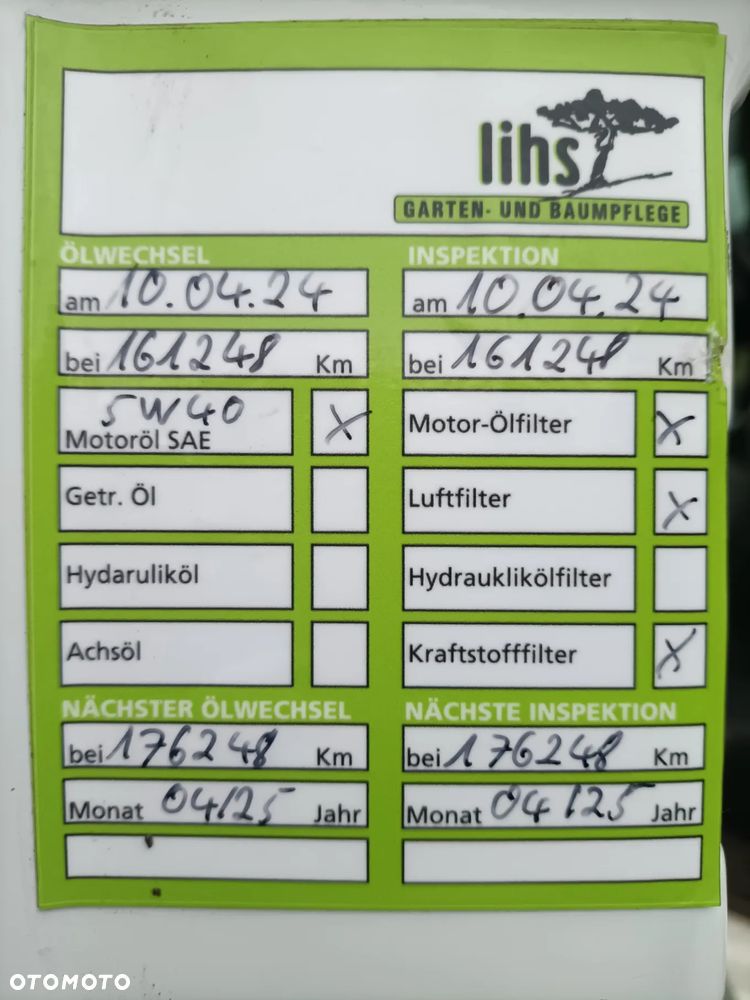 lihs
GARTEN- UND BAUMPFLEGE
ÖLWECHSEL
am 10.04.24
bei 161248 Km
5W40
Motoröl SAE X
Getr. Öl
Hydaruliköl
Achsöl
NÄCHSTER ÖLWECHSEL
bei 176248 Km
Monat 04/25 Jahr
INSPEKTION
am 10.04.24
bei 161248 Km
Motor-Ölfilter X
Luftfilter X
Hydrauklikölfilter
Kraftstofffilter X
NÄCHSTE INSPEKTION
bei 176248 Km
Monat 04/25 Jahr
OTOMOTO